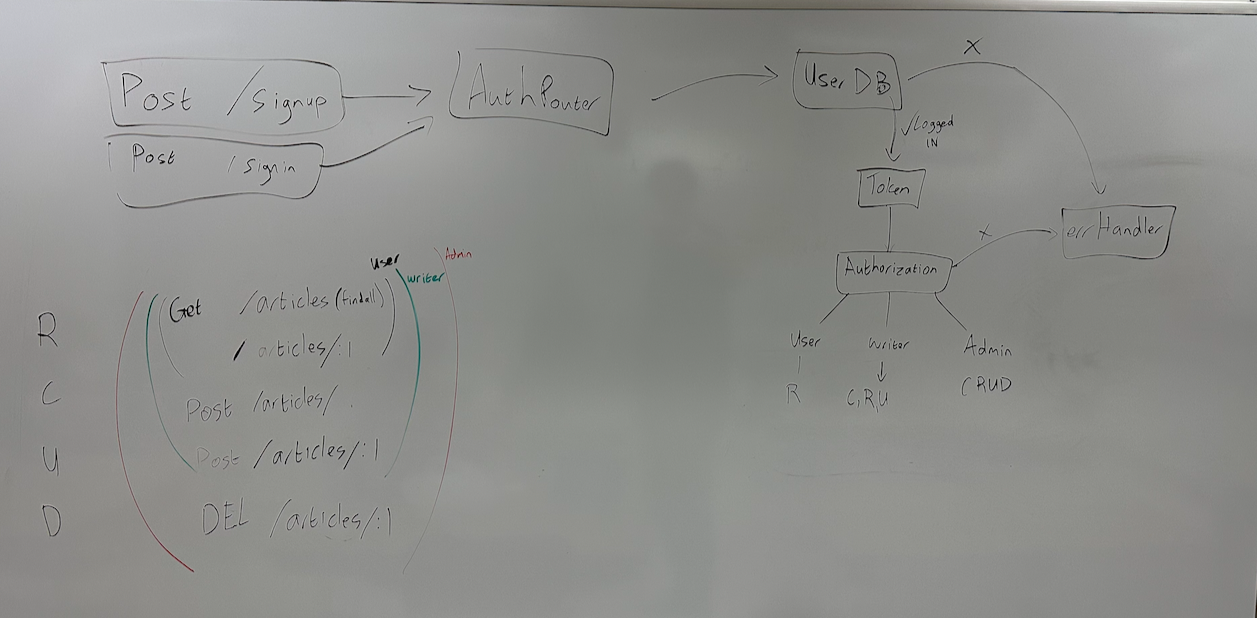 Post /signup
Post /signin
AuthRouter
User DB
X
√Logged
IN
Token
errHandler
X
Authorization
User
Writer
Admin
R
C,R,U
CRUD
User
Writer
Admin
R
Get /articles(findall)
/articles/:1
C
Post /articles/
U
Post /articles/:1
D
DEL /articles/:1